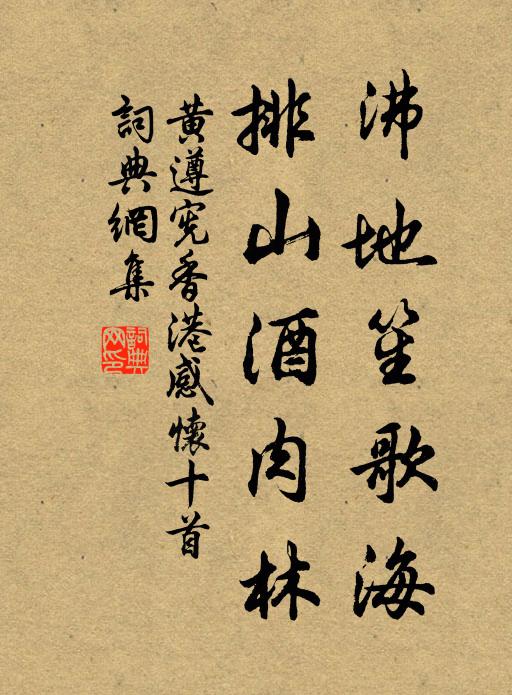 沸地笙歌海
排山酒肉林
黃遵宪香港感懷十首
詞典網集
詞典网印